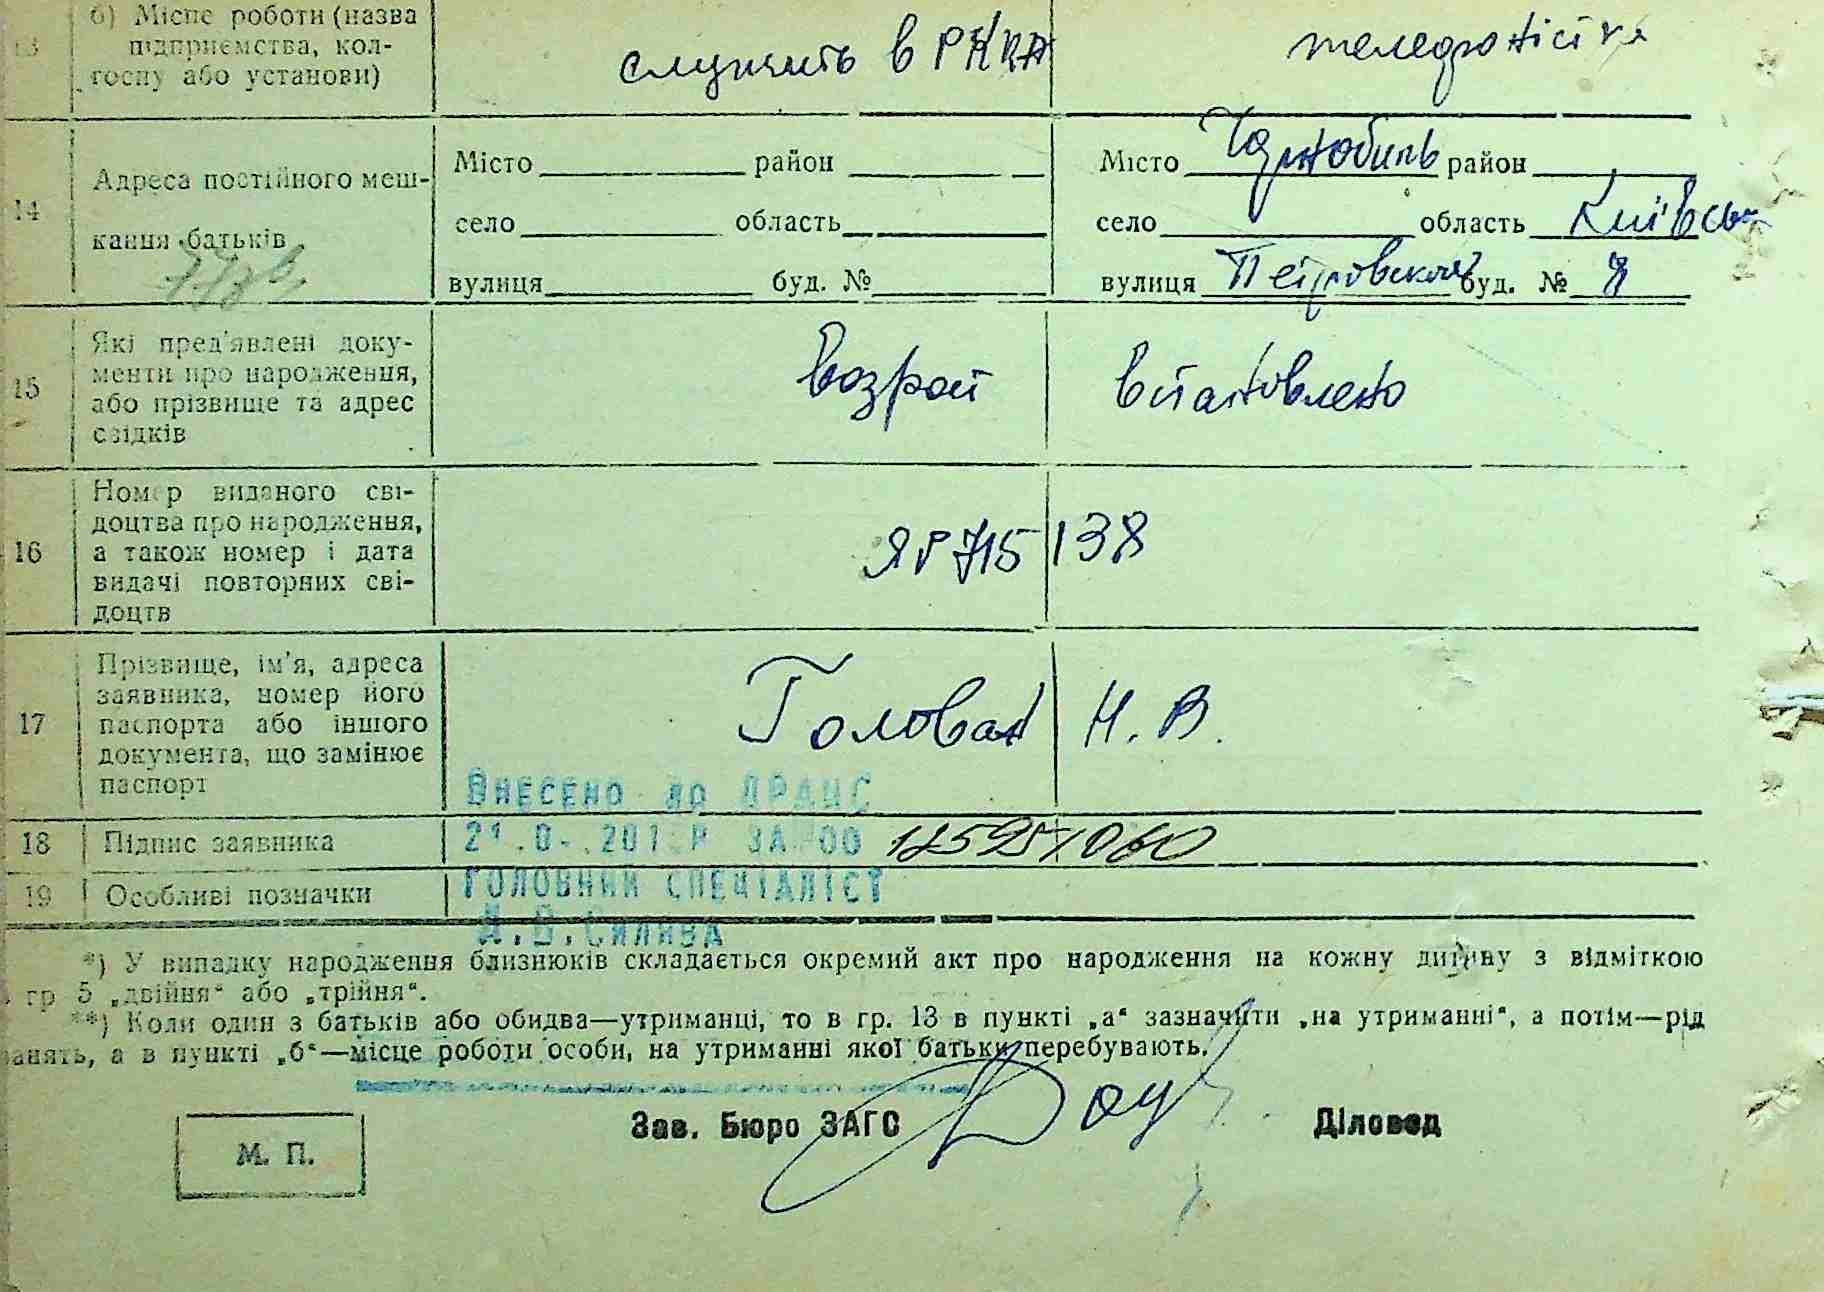 13 б) Місце роботи (назва підприємства, колгоспу або установи)
служить в РККА телефоністка
14 Адреса постійного мешкання батьків
Місто район Місто Чорнобиль район
село область село область Київськ
вулиця буд. № вулиця Петровского буд. № 8
15 Які пред'явлені документи про народження, або прізвище та адрес свідків
возраст встановлено
16 Номер виданого свідоцтва про народження, а також номер і дата видачі повторних свідоцтв
ЯР 715138
17 Прізвище, ім'я, адреса заявника, номер його паспорта або іншого документа, що замінює паспорт
Голован Н. В.
Внесено до ДРАЦС
18 Підпис заявника
ЗА 00
19 Особливі позначки
Головний спеціаліст
*) У випадку народження близнюків складається окремий акт про народження на кожну дитину з відміткою
гр 5 „двійня“ або „трійня“.
**) Коли один з батьків або обидва—утриманці, то в гр. 13 в пункті „а“ зазначити „на утриманні“, а потім—рід
занять, а в пункті „б“—місце роботи особи, на утриманні якої батьки перебувають.
Зав. Бюро ЗАГС Діловод
М. П.